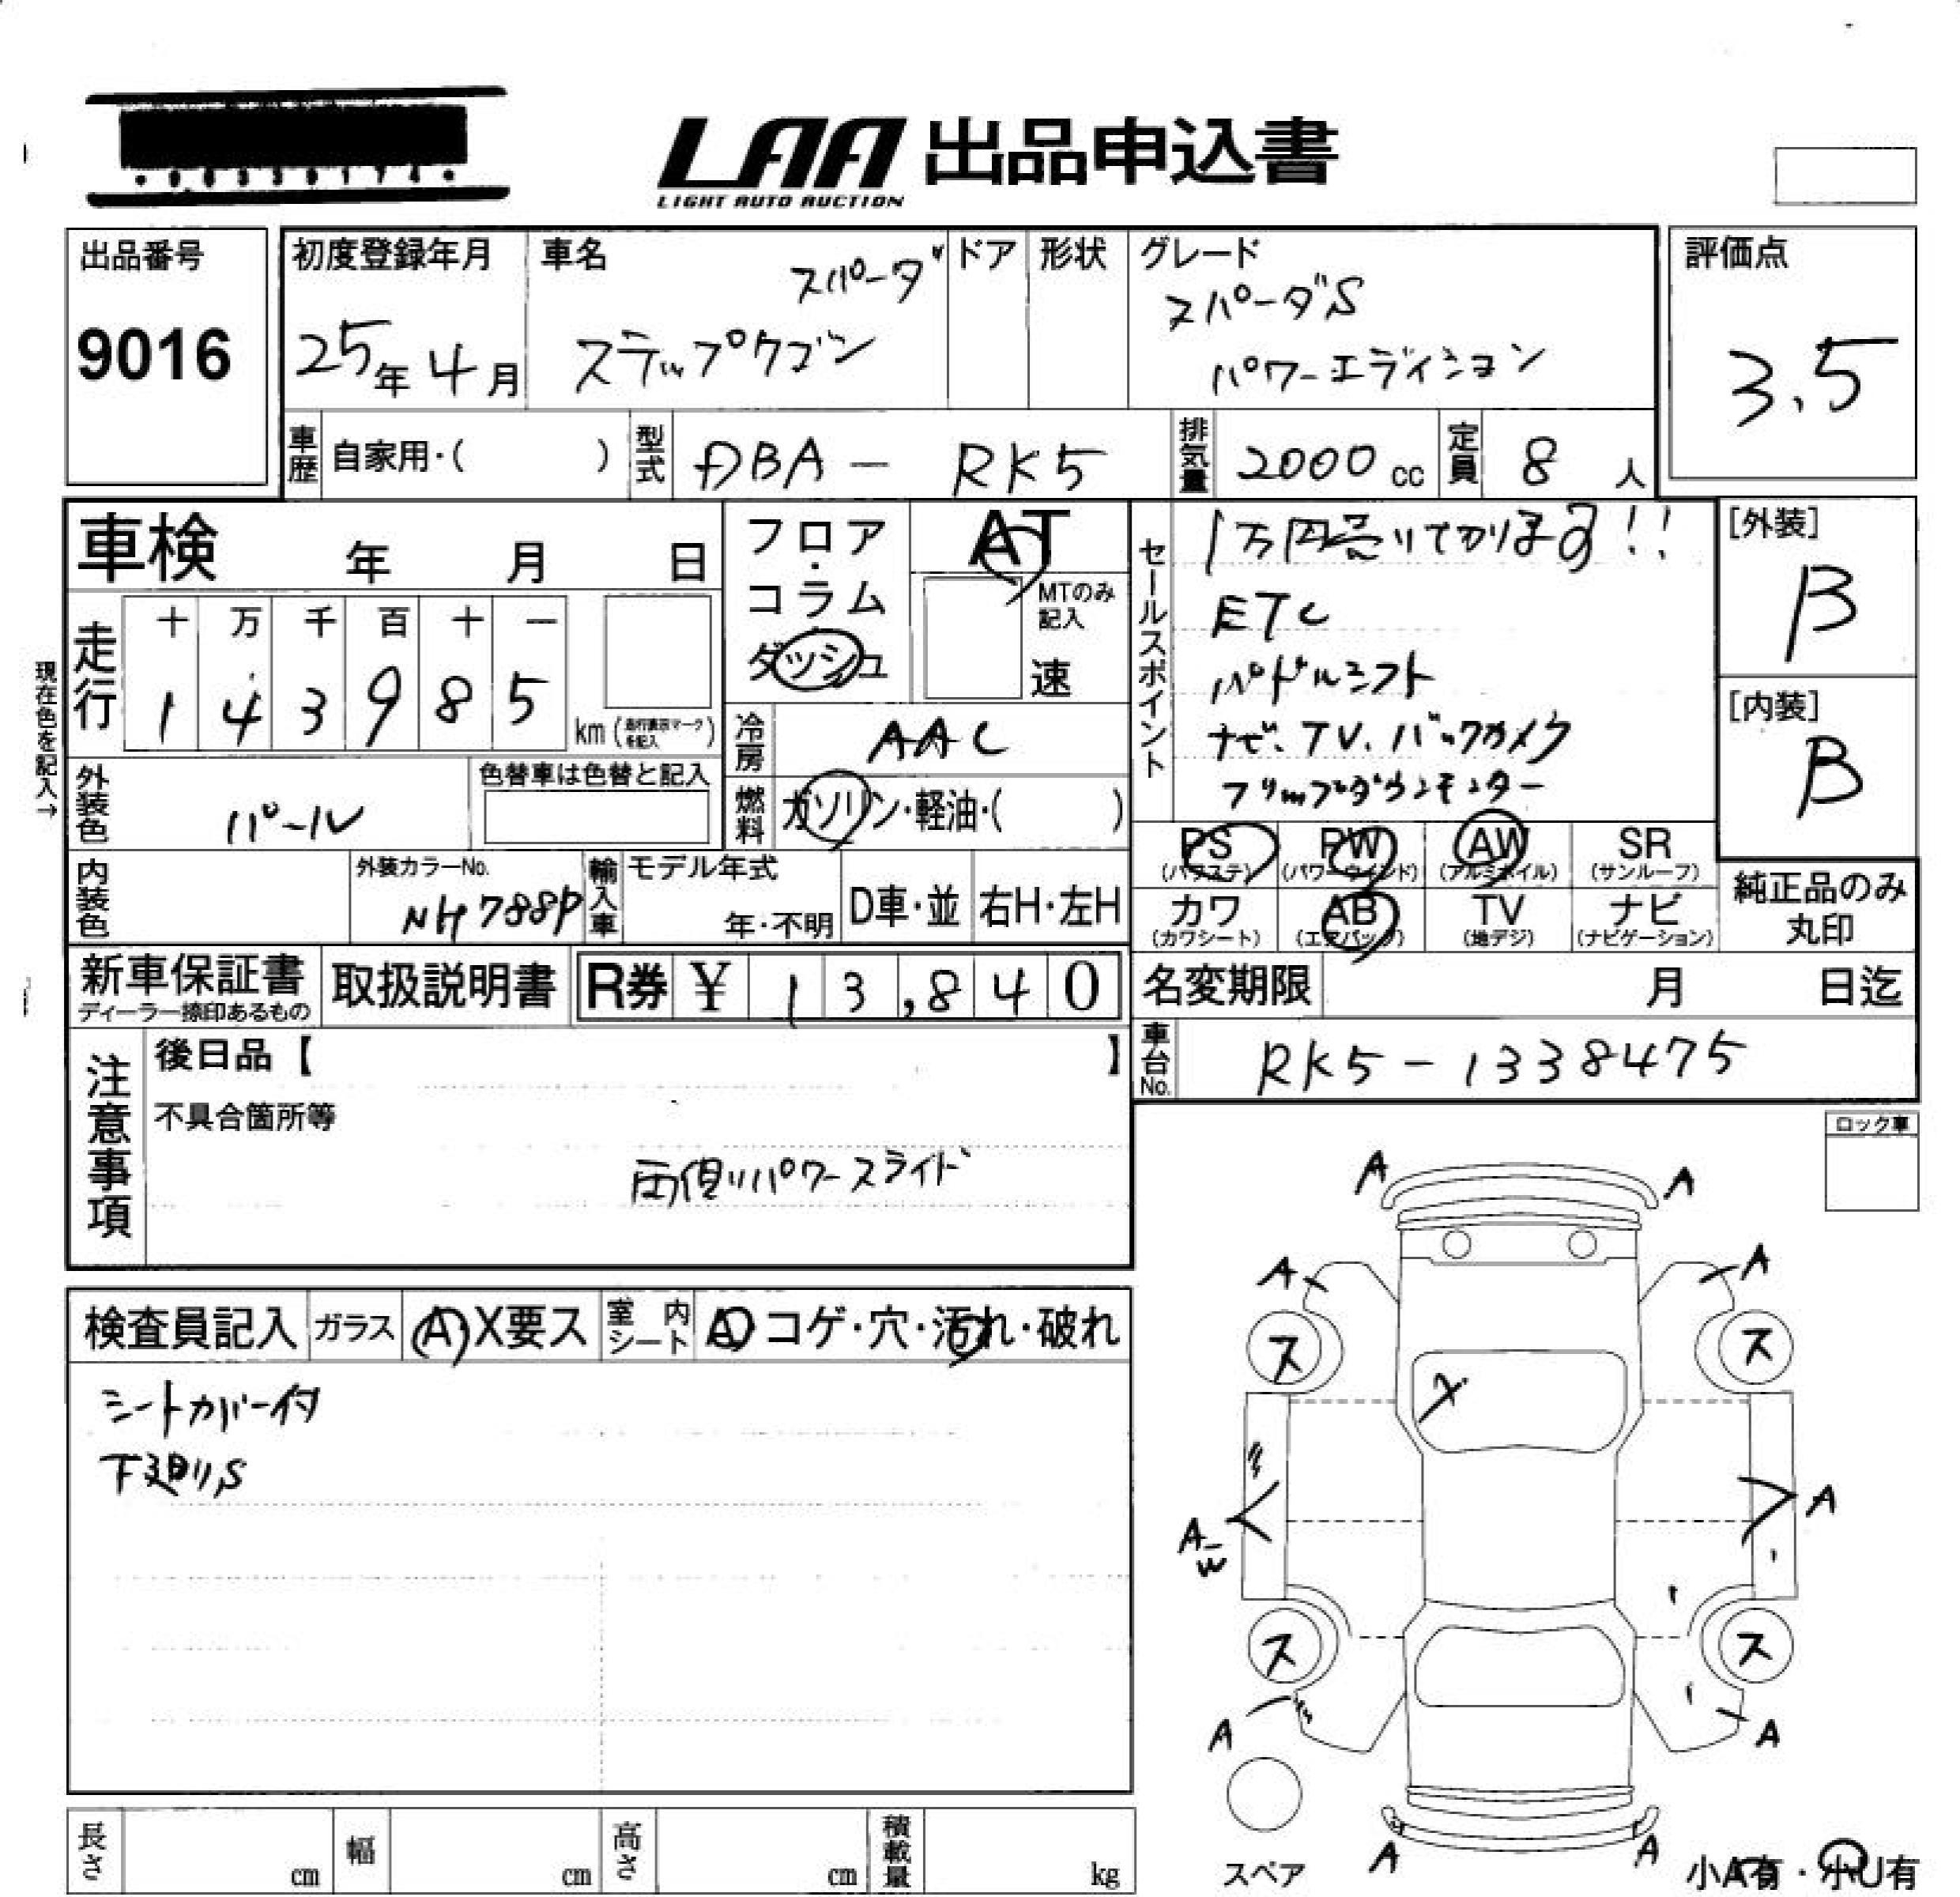 LAA 出品申込書
LIGHT AUTO AUCTION
出品番号
9016
初度登録年月
25年 4月
車名
スパーダ
ステップワゴン
ドア
形状
グレード
スパーダS
パワーエディション
評価点
3.5
車歴
自家用・( )
型式
DBA - RK5
排気量
2000 cc
定員
8 人
車検 年 月 日
フロア・コラム
ダッシュ
AT
MTのみ記入
速
セールスポイント
1万円売りきります!!
ETC
パドルシフト
ナビ、TV、バックカメラ
フリップダウンモニター
[外装]
B
[内装]
B
現在色を記入→
走行
十 万 千 百 十 一
1 4 3 9 8 5
km (走行表示マークを記入)
冷房
AAC
外装色
パール
色替車は色替と記入
燃料
ガソリン・軽油・( )
PS
(パワステ)
PW
(パワーウインド)
AW
(アルミホイル)
SR
(サンルーフ)
カワ
(カワシート)
AB
(エアバッグ)
TV
(地デジ)
ナビ
(ナビゲーション)
純正品のみ
丸印
内装色
外装カラーNo.
NH788P
輸入車
モデル年式
年・不明
D車・並
右H・左H
新車保証書
ディーラー捺印あるもの
取扱説明書
R券 ¥ 13,840
名変期限 月 日迄
車台No.
RK5-1338475
注意事項
後日品【 】
不具合箇所等
両側パワースライド
ロック車
検査員記入
ガラス
A X要ス
室内
シート
A コゲ・穴・汚れ・破れ
シートカバー付
下廻りS
A
A
A
A
ス
ス
X
A
A
W
ス
ス
A
A
A
A
スペア
小A有・小U有
長さ cm
幅 cm
高さ cm
積載量 kg